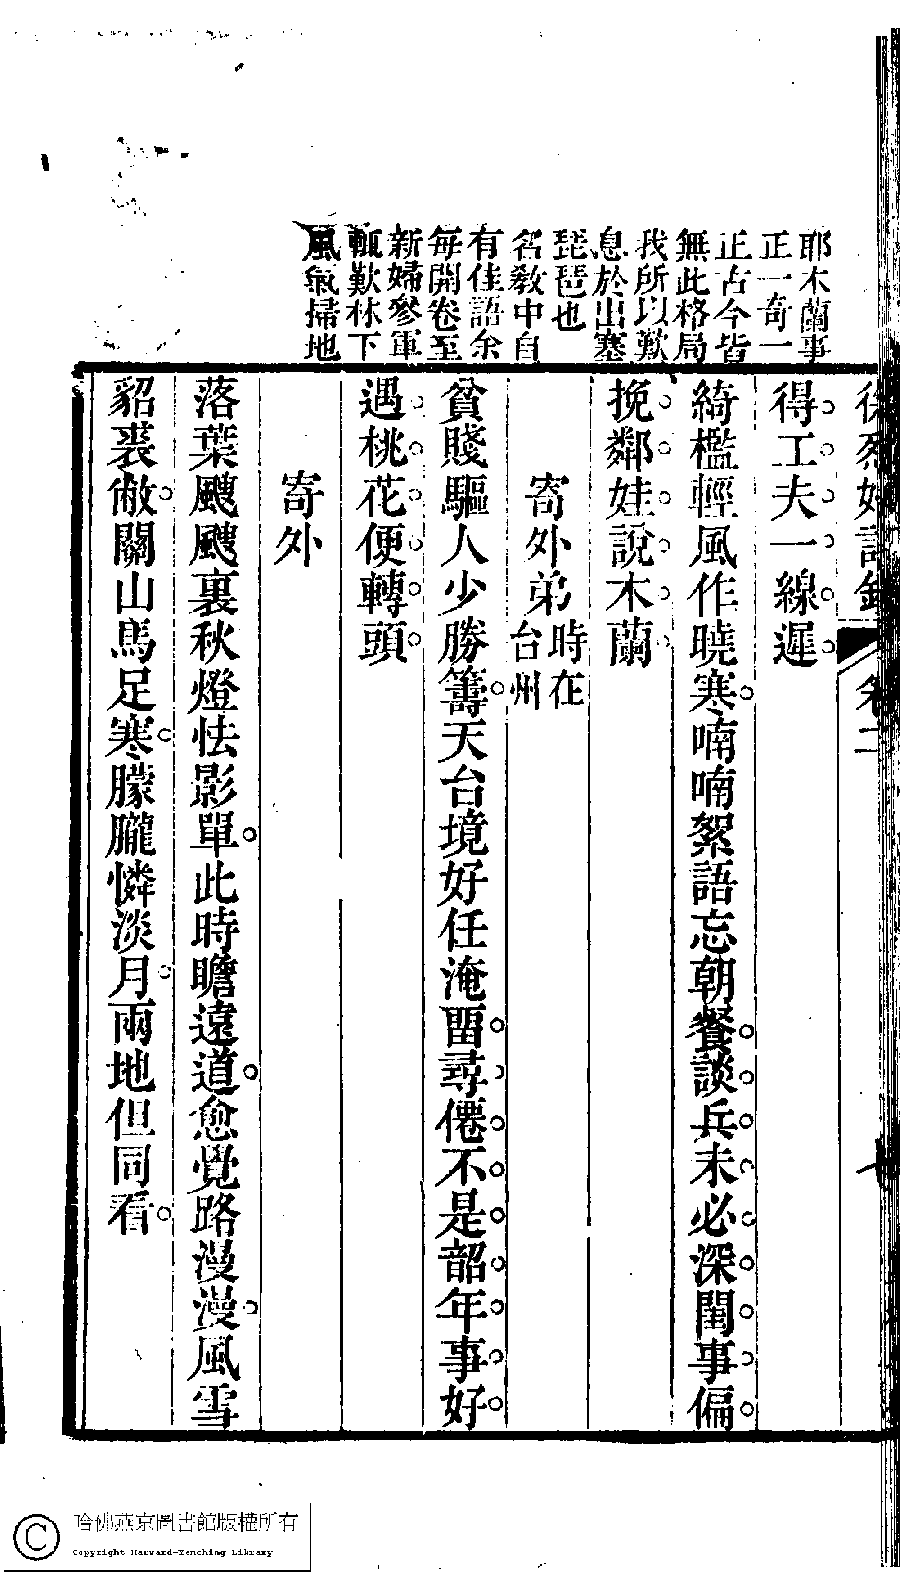 耶木蘭事
正一奇一
正古今皆
無此格局
我所以歎
息於出塞
琵琶也
名教中自
有佳語余
每開卷至
新婦參軍
輒歎林下
風氣掃地
徐烈婦詩鈔 卷二 七
得工夫一線遲
綺檻輕風作曉寒喃喃絮語忘朝餐談兵未必深閨事偏
挽鄰娃說木蘭
寄外弟時在台州
貧賤驅人少勝籌天台境好任淹畱尋僊不是韶年事好
遇桃花便轉頭
寄外
落葉颼颼裏秋燈怯影單此時瞻遠道愈覺路漫漫風雪
貂裘敝關山馬足寒朦朧憐淡月兩地但同看
哈佛燕京圖書館版權所有
Copyright Harvard-Yenching Library